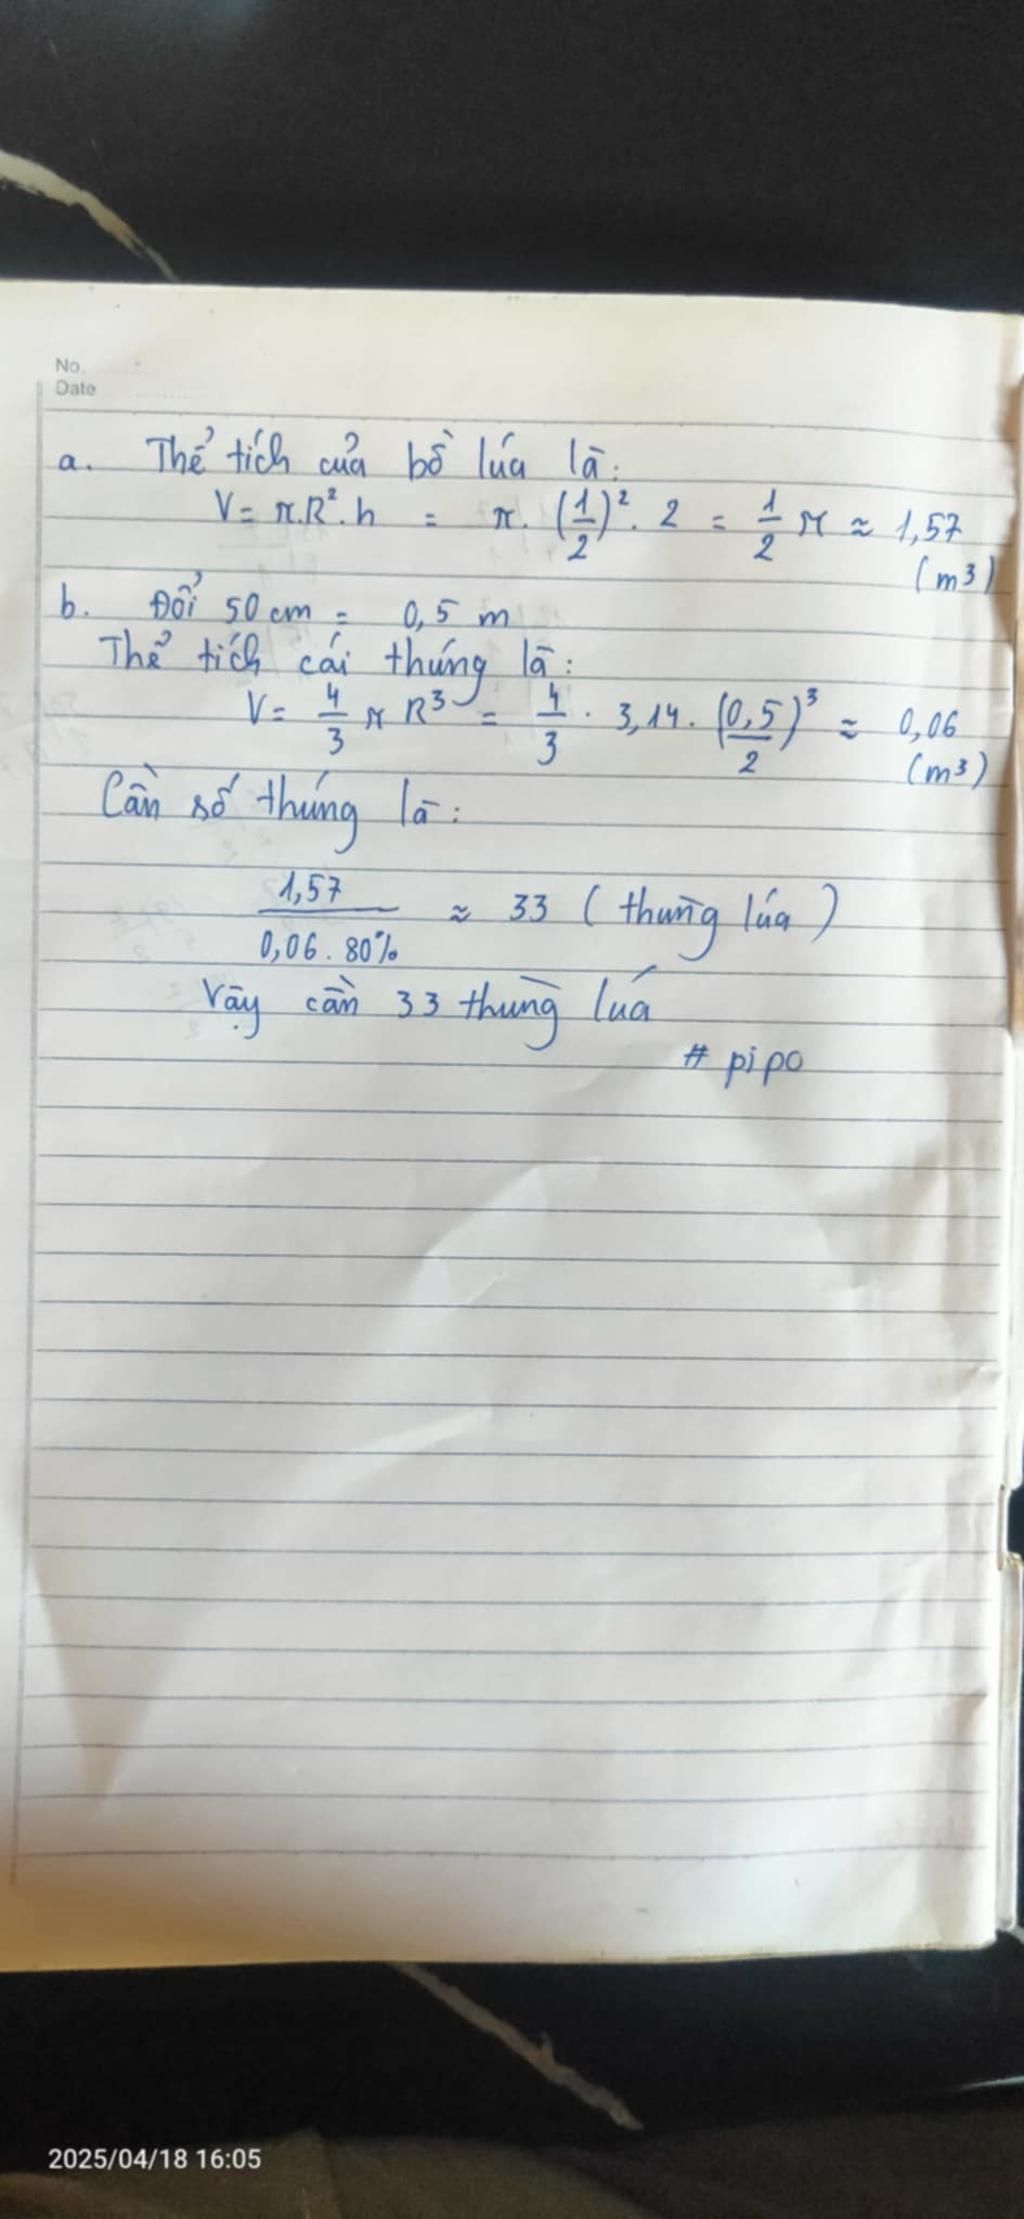 No.
Date
a. Thể tích của bồ lúa là:
V = π.R². h = π. (1/2)². 2 = 1/2 π ≈ 1,57
(m³)
b. Đổi 50 cm = 0,5 m
Thể tích cái thúng là:
V = 4/3 π R³ = 4/3 . 3,14. (0,5/2)³ ≈ 0,06
(m³)
Cần số thúng là:
1,57 / 0,06 . 80% ≈ 33 (thùng lúa)
Vậy cần 33 thùng lúa
# pipo
2025/04/18 16:05